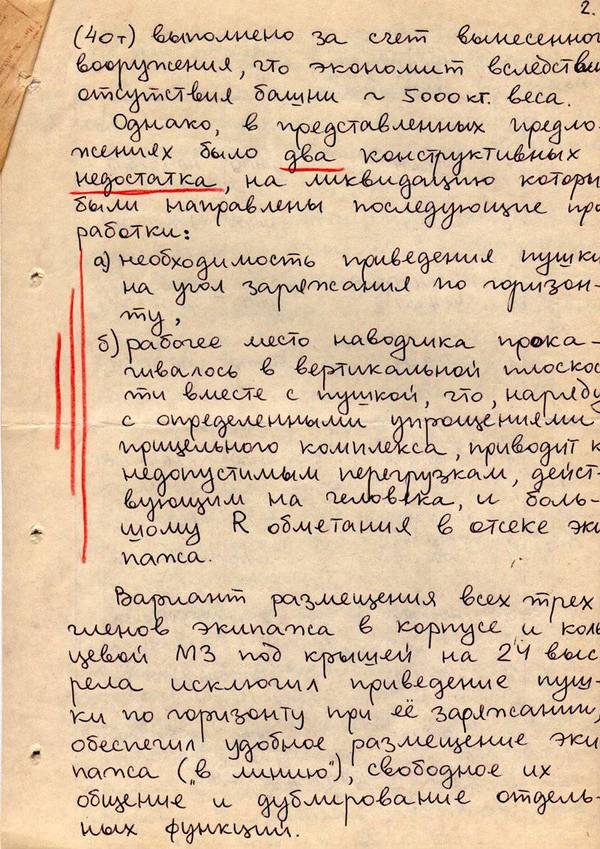 2.
(40т) выполнено за счет вынесенног
вооружения, что экономит вследстви
отсутствия башни ~ 5000 кг. веса.
Однако, в представленных предло-
жениях было два конструктивных
недостатка, на ликвидацию которы
были направлены последующие про
работки:
а) необходимость приведения пушки
на угол заряжания по горизон-
ту,
б) рабочее место наводчика прока-
чивалось в вертикальной плоскос
ти вместе с пушкой, что, наряду
с определенными упрощениями
прицельного комплекса, приводит к
недопустимым перегрузкам, дейст-
вующим на человека, и боль-
шому R обметания в отсеке эки
пажа.
Вариант размещения всех трех
членов экипажа в корпусе и коль
цевой МЗ под крышей на 24 выст
рела исключил приведение пуш-
ки по горизонту при её заряжании,
обеспечил удобное размещение эки
пажа ("в линию"), свободное их
общение и дублирование отдель-
ных функций.